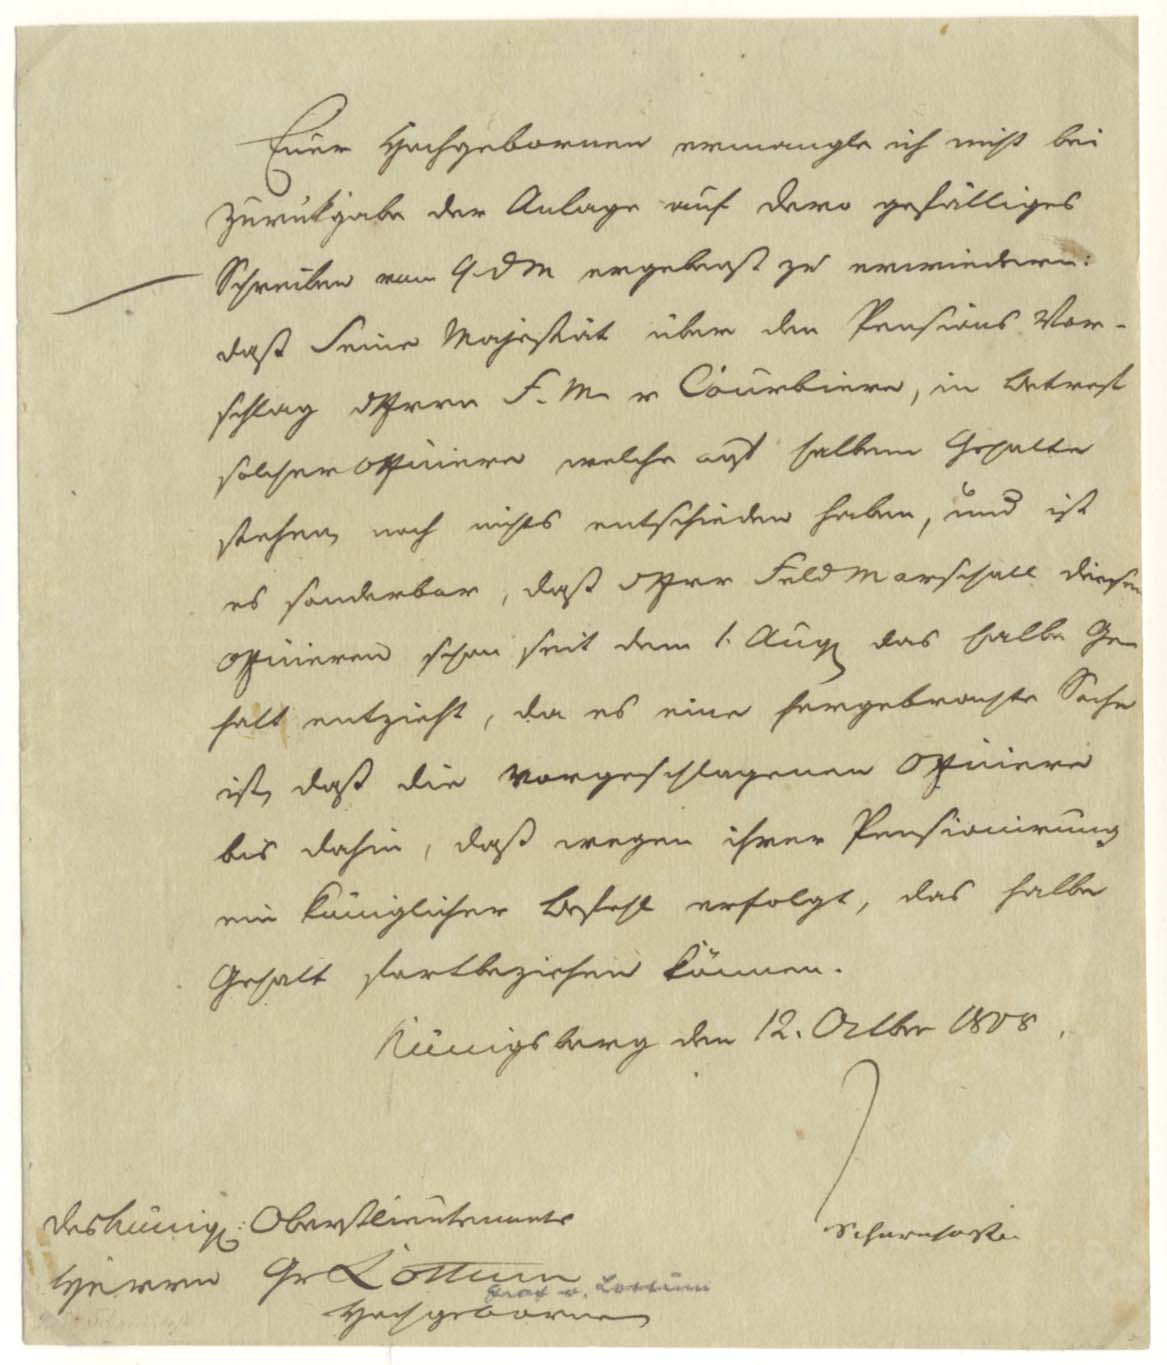 Euer Hochgebornen ermangle ich nicht bei
Zurückgabe der Anlage auf dero gefälliges
Schreiben vom 9 d M ergebenst zu erwiedern:
daß Seine Majestät über den Pensions Vor-
schlag d Herrn F. M. v Courbiere, in Betreff
solcher Officiere welche auf halbem Gehalte
stehen, noch nichts entschieden haben, und ist
es sonderbar, daß d Herr Feld Marschall diesen
Officieren schon seit dem 1. Aug das halbe Ge-
halt entzieht, da es eine hergebrachte Sache
ist, daß die vorgeschlagenen Officiere
bis dahin, daß wegen ihrer Pensionirung
ein königlicher Befehl erfolgt, das halbe
Gehalt fortbeziehen können.
Königsberg den 12. Octber 1808.
Scharnhorst
Des Königl: Oberstlieutenants
Herrn Gr Lottum
Graf v. Lottum
Hochgeboren